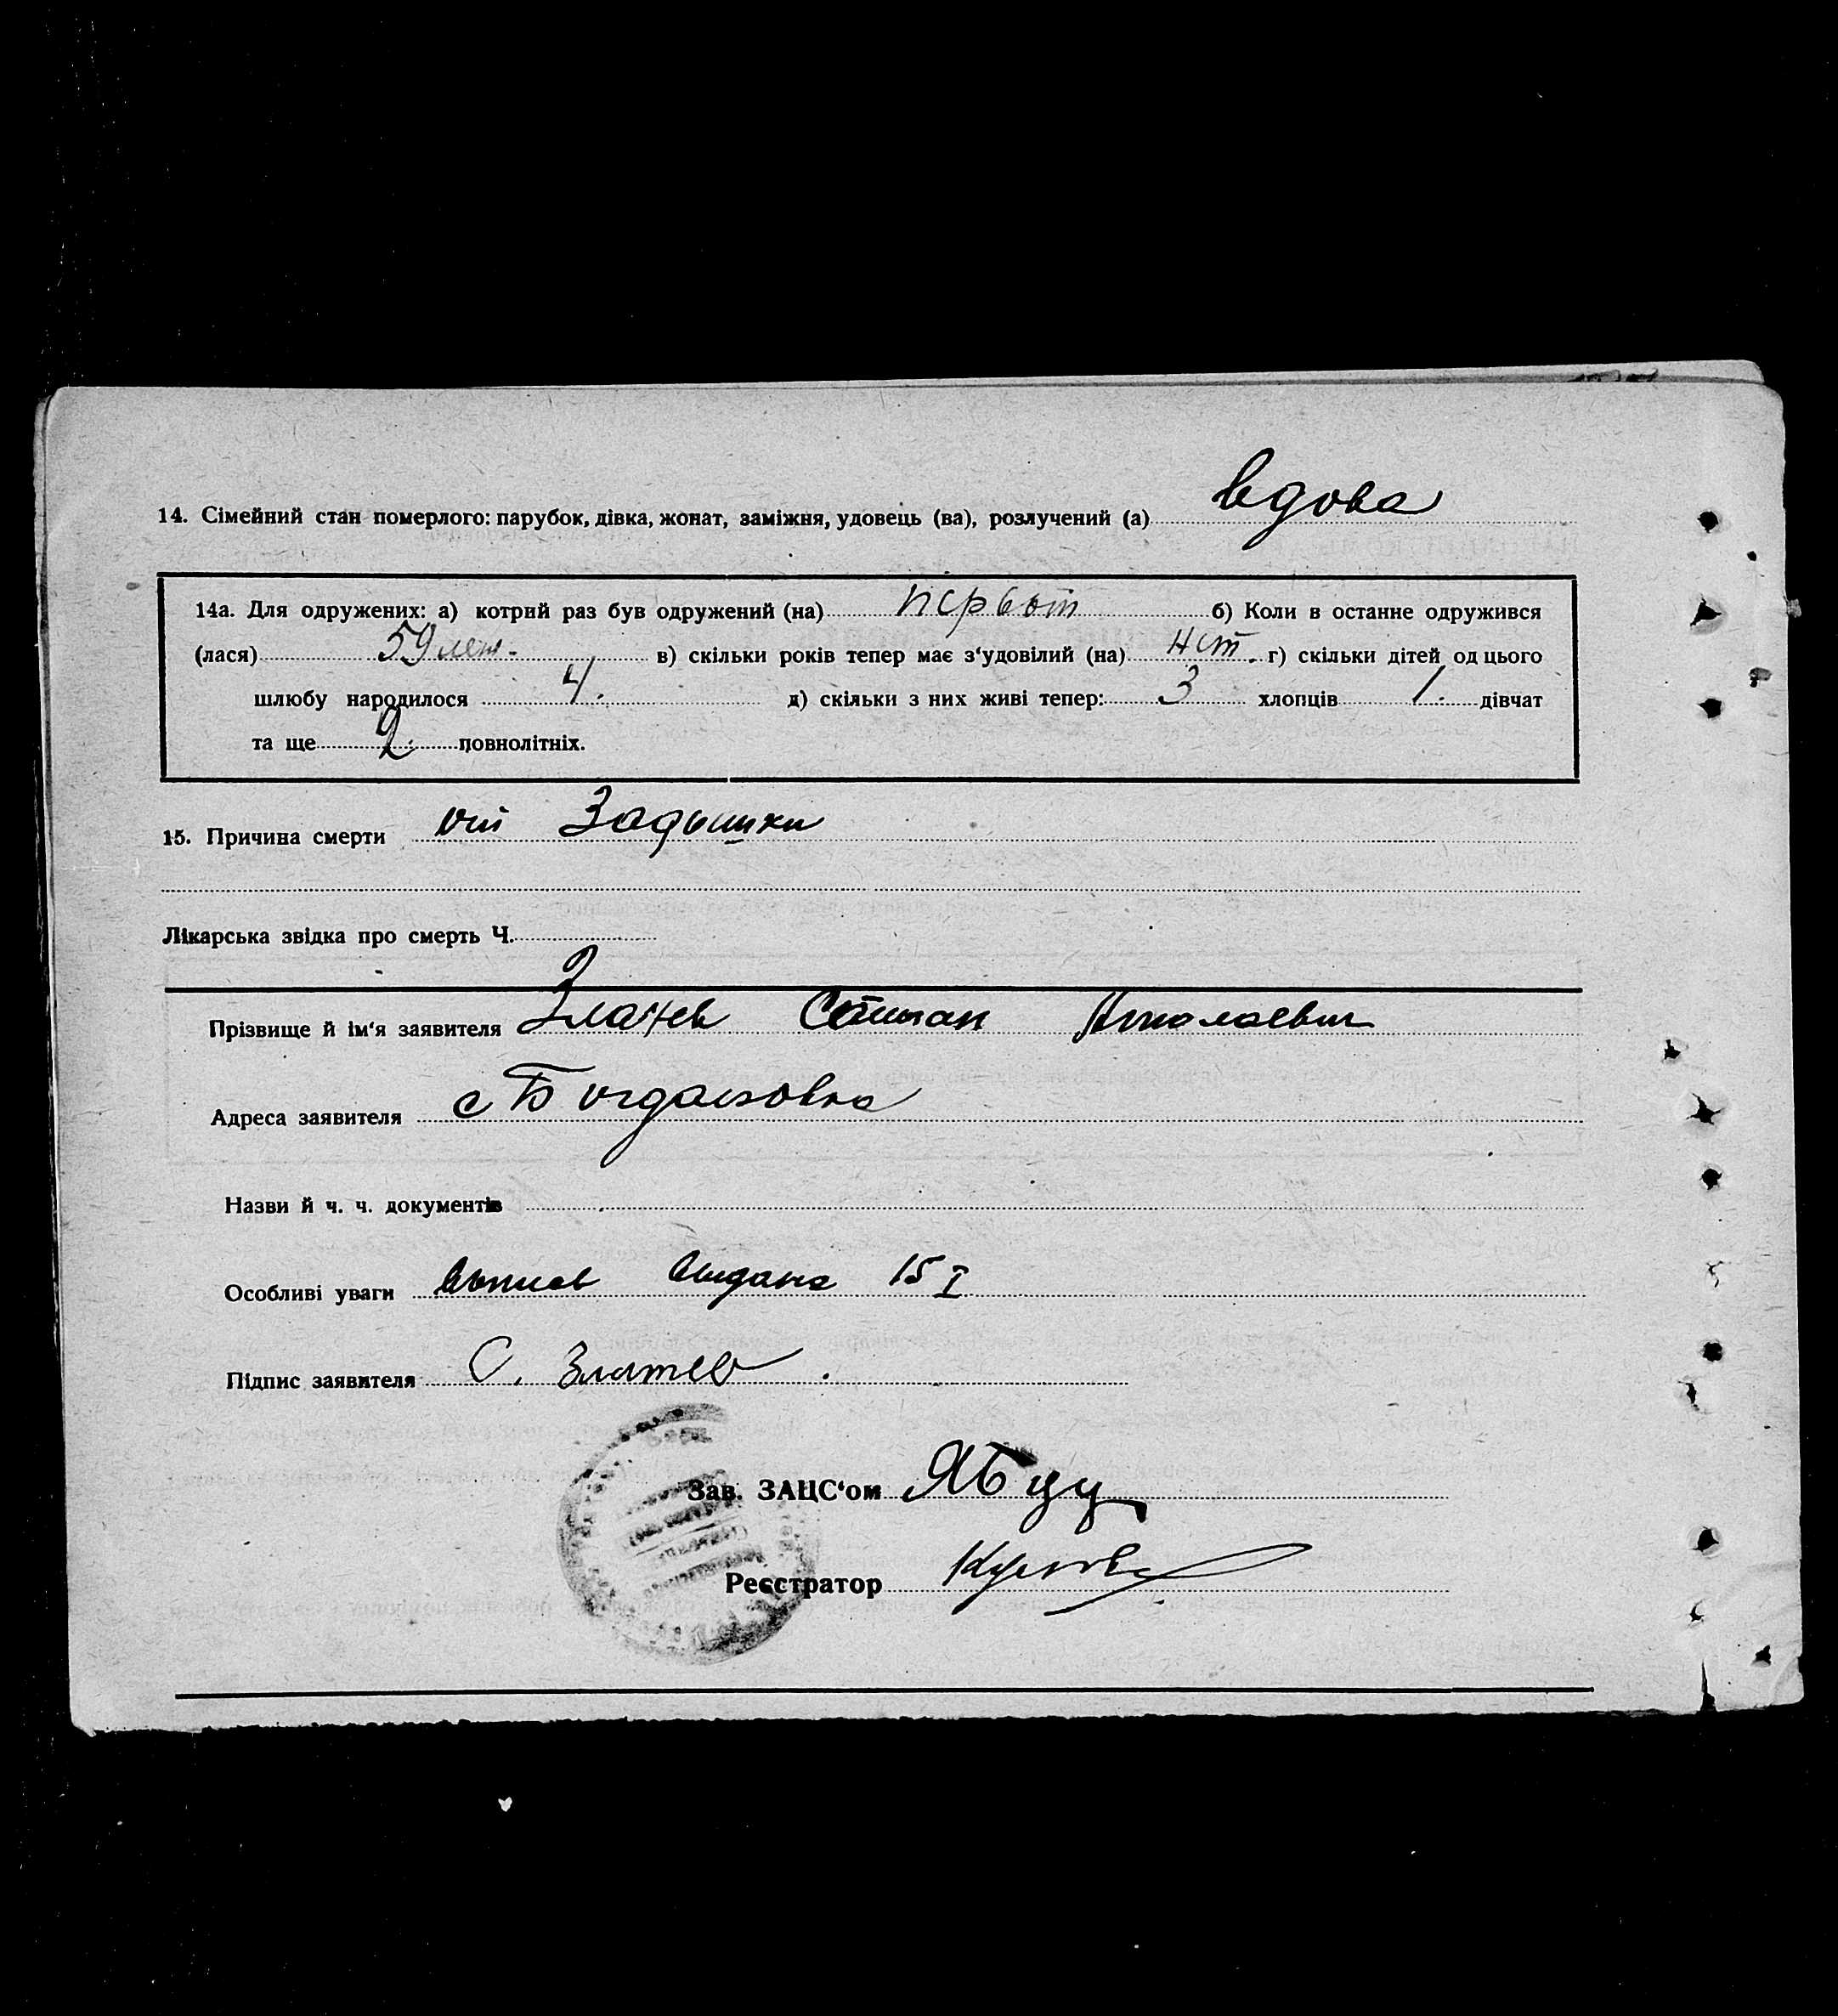 14. Сімейний стан померлого: парубок, дівка, жонат, заміжня, удовець (ва), розлучений (а) вдова
14а. Для одружених: а) котрий раз був одружений (на) первый б) Коли в останнє одружився
(лася) 59 лет. в) скільки років тепер має з‘удовілий (на) нет. г) скільки дітей од цього
шлюбу народилося 4. д) скільки з них живі тепер: 3 хлопців 1. дівчат
та ще 2 повнолітніх.
15. Причина смерти от Задышки
Лікарська звідка про смерть Ч.
Прізвище й ім‘я заявителя Златев Степан Николаевич
Адреса заявителя с Богдановка
Назви й ч. ч. документів
Особливі уваги выпись выдана 15 I
Підпис заявителя С. Златев.
Зав. ЗАЦС‘ом
Реєстратор